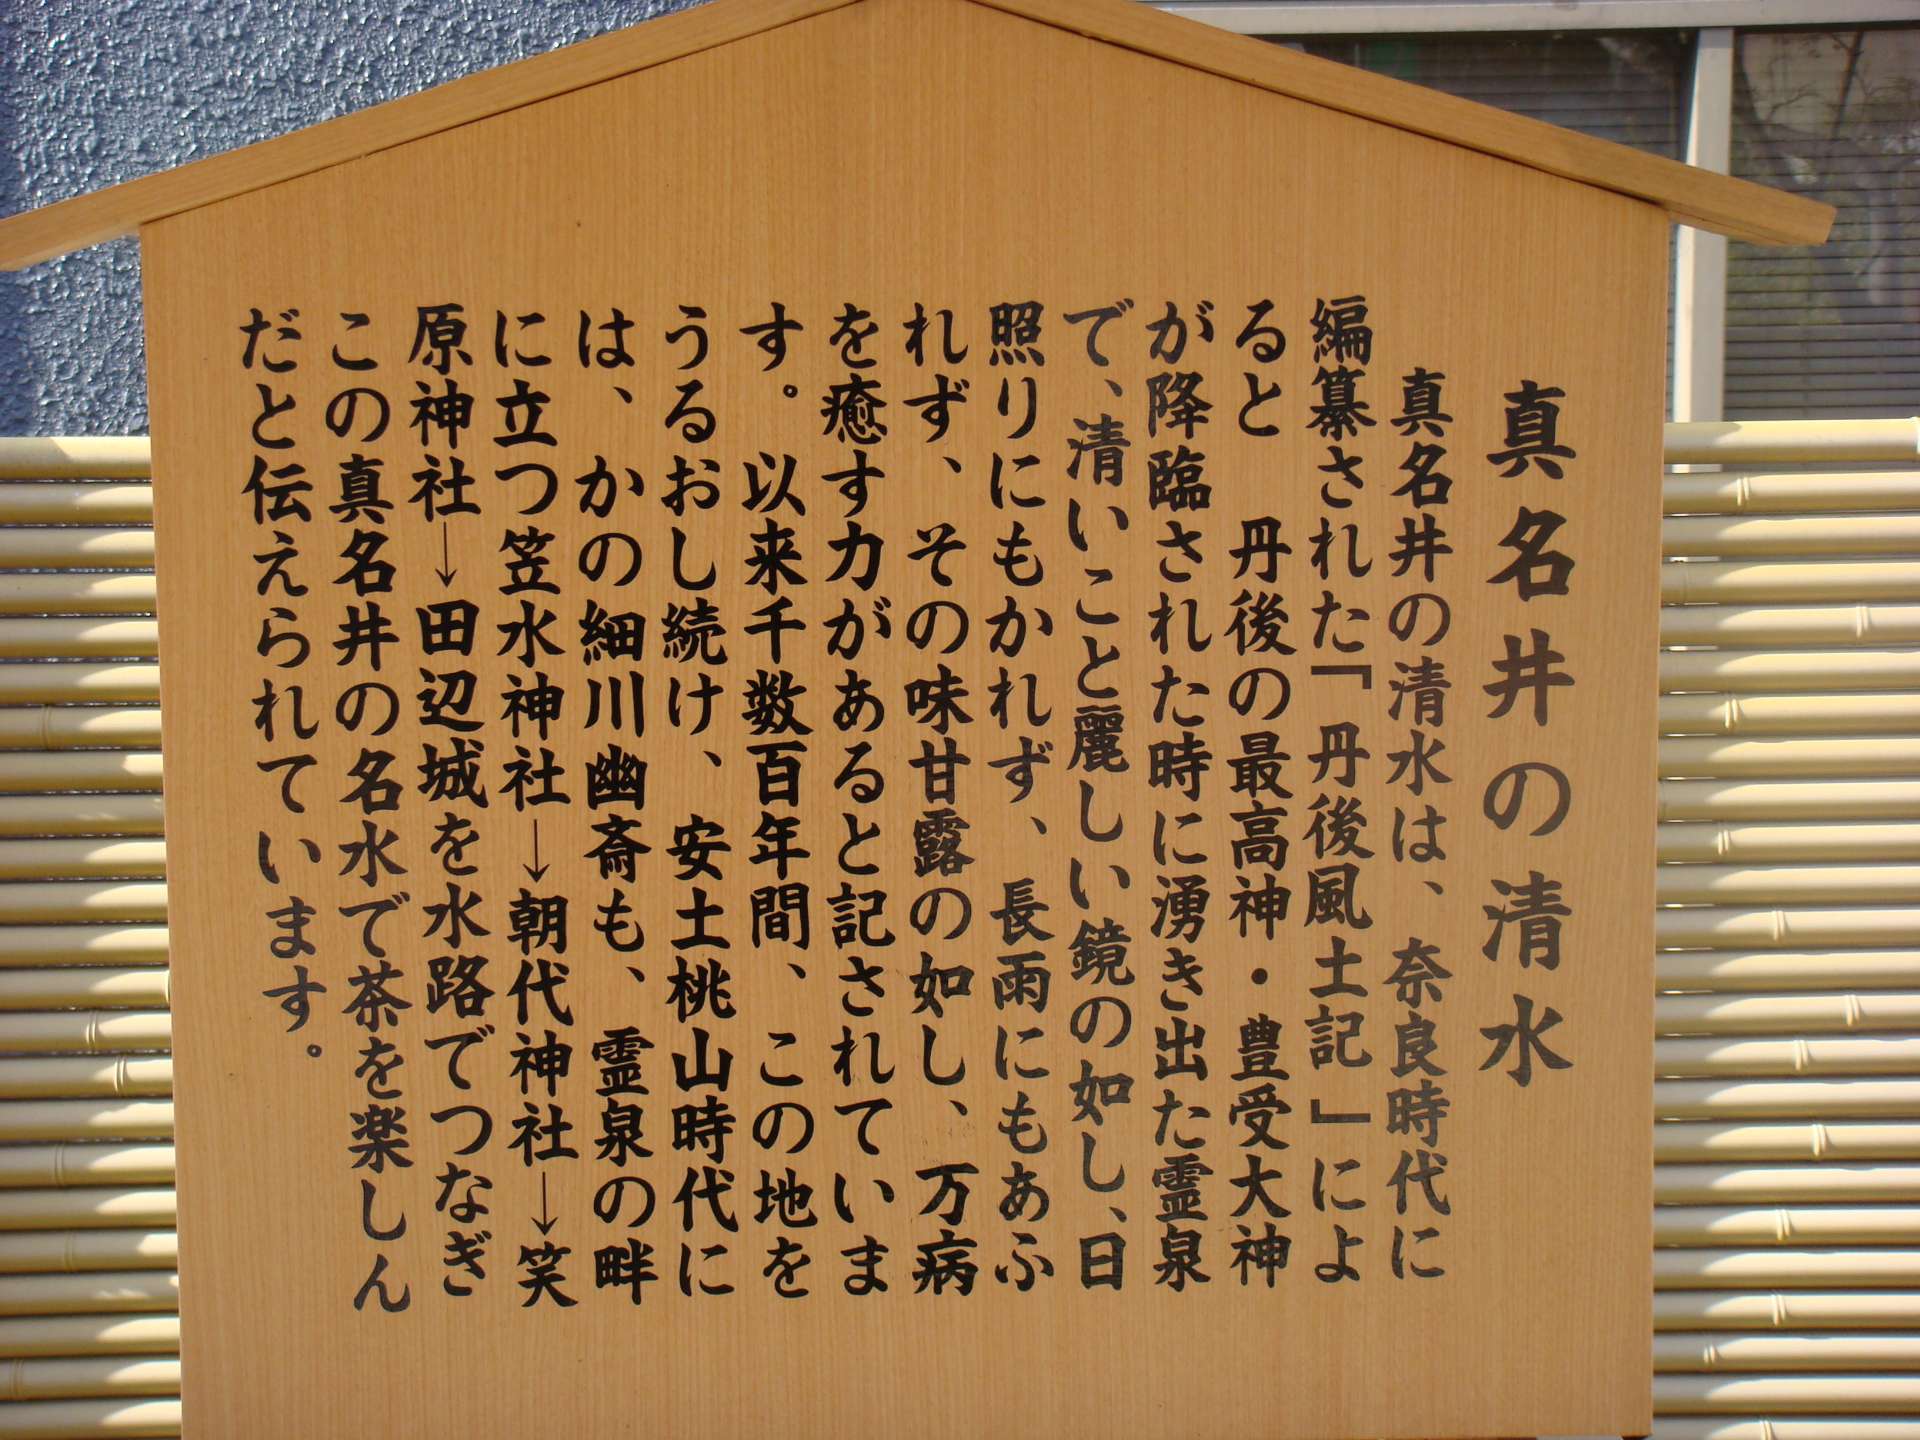 真名井の清水
真名井の清水は、奈良時代に
編纂された『丹後風土記』によ
ると　丹後の最高神・豊受大神
が降臨された時に湧き出た霊泉
で、清いこと麗しい鏡の如し、日
照りにもかれず、長雨にもあふ
れず、その味甘露の如し、万病
を癒す力があると記されていま
す。以来千数百年間、この地を
うるおし続け、安土桃山時代に
は、かの細川幽斎も、霊泉の畔
に立つ笠水神社→朝代神社→笑
原神社→田辺城を水路でつなぎ
この真名井の名水で茶を楽しん
だと伝えられています。